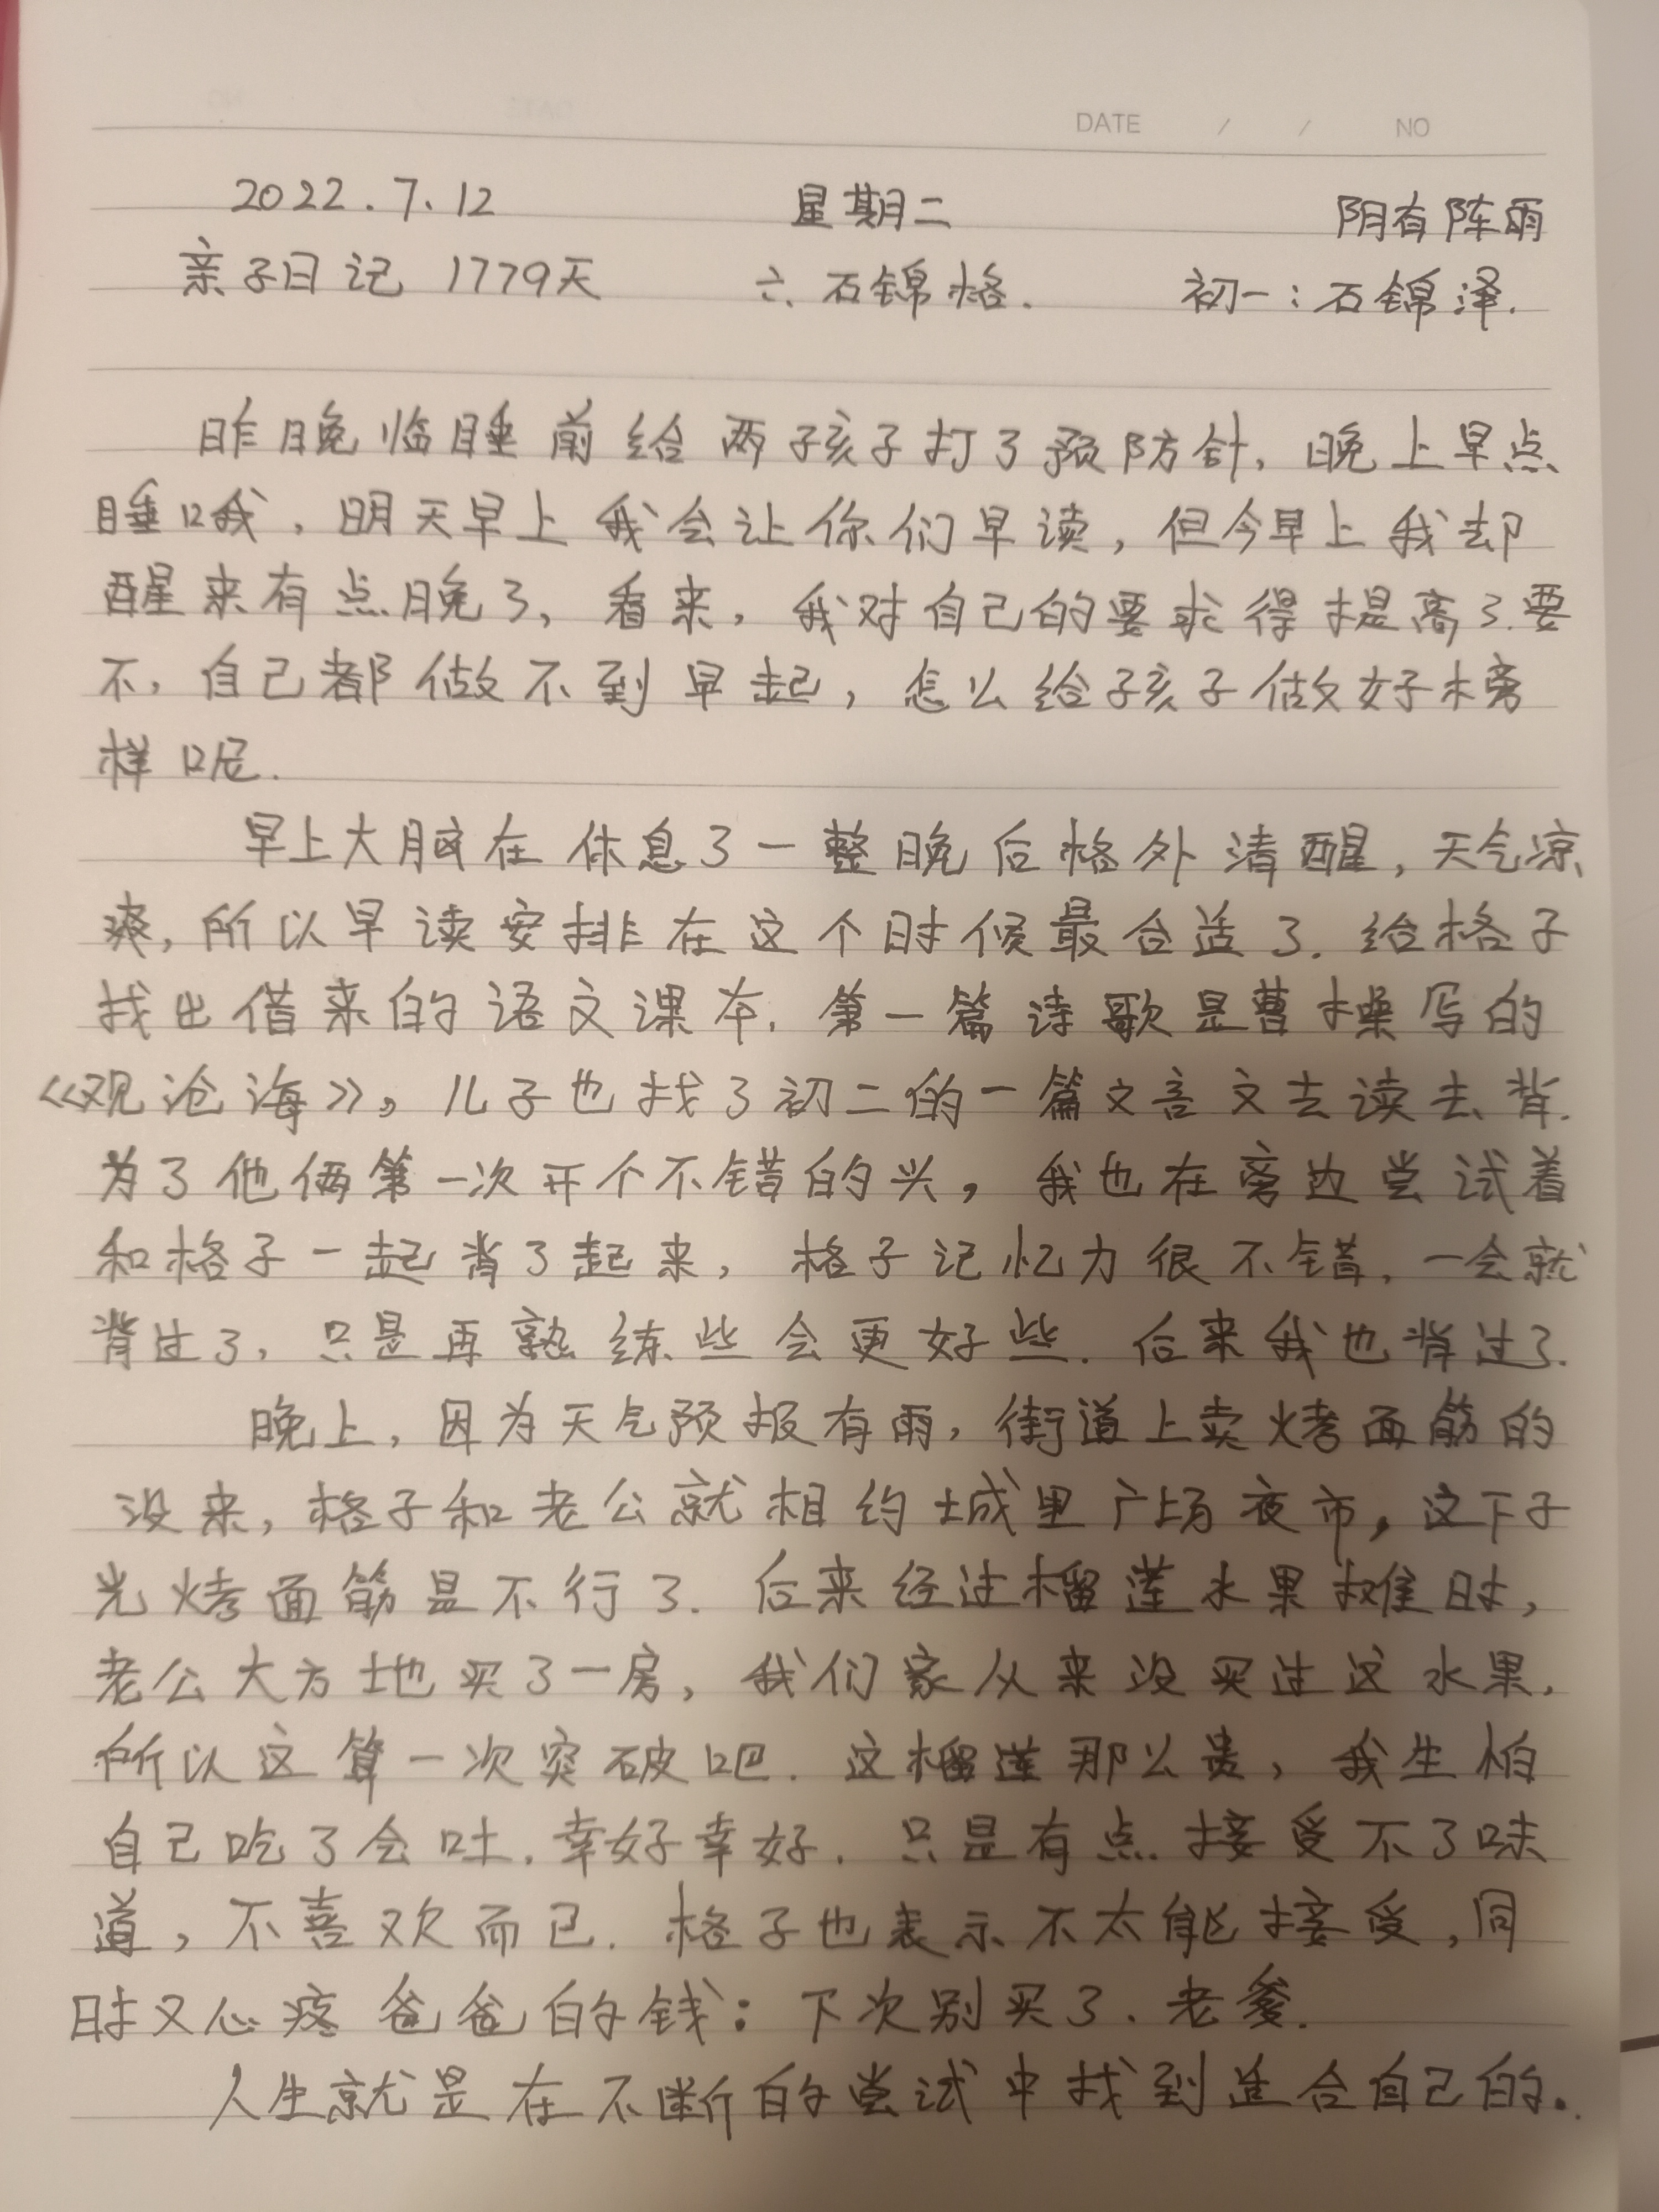 DATE / / NO
2022.7.12 星期二 阴有阵雨
亲子日记 1779天 六、石锦格. 初一:石锦泽.
昨晚临睡前给两孩子打了预防针,晚上早点
睡哦,明天早上我会让你们早读,但今早上我却
醒来有点晚了,看来,我对自己的要求得提高了.要
不,自己都做不到早起,怎么给孩子做好榜
样呢.
早上大脑在休息了一整晚后格外清醒,天气凉
爽,所以早读安排在这个时候最合适了.给格子
找出借来的语文课本.第一篇诗歌是曹操写的
《观沧海》。儿子也找了初二的一篇文言文去读去背.
为了他俩第一次开个不错的兴,我也在旁边尝试着
和格子一起背了起来,格子记忆力很不错,一会就
背过了,只是再熟练些会更好些.后来我也背过了.
晚上,因为天气预报有雨,街道上卖烤面筋的
没来,格子和老公就相约城里广场夜市,这下子
光烤面筋是不行了.后来经过榴莲水果摊时,
老公大方地买了一房,我们家从来没买过这水果,
所以这算一次突破吧.这榴莲那么贵,我生怕
自己吃了会吐.幸好幸好.只是有点接受不了味
道,不喜欢而已.格子也表示不太能接受,同
时又心疼爸爸的钱:下次别买了、老爹.
人生就是在不断的尝试中找到适合自己的.